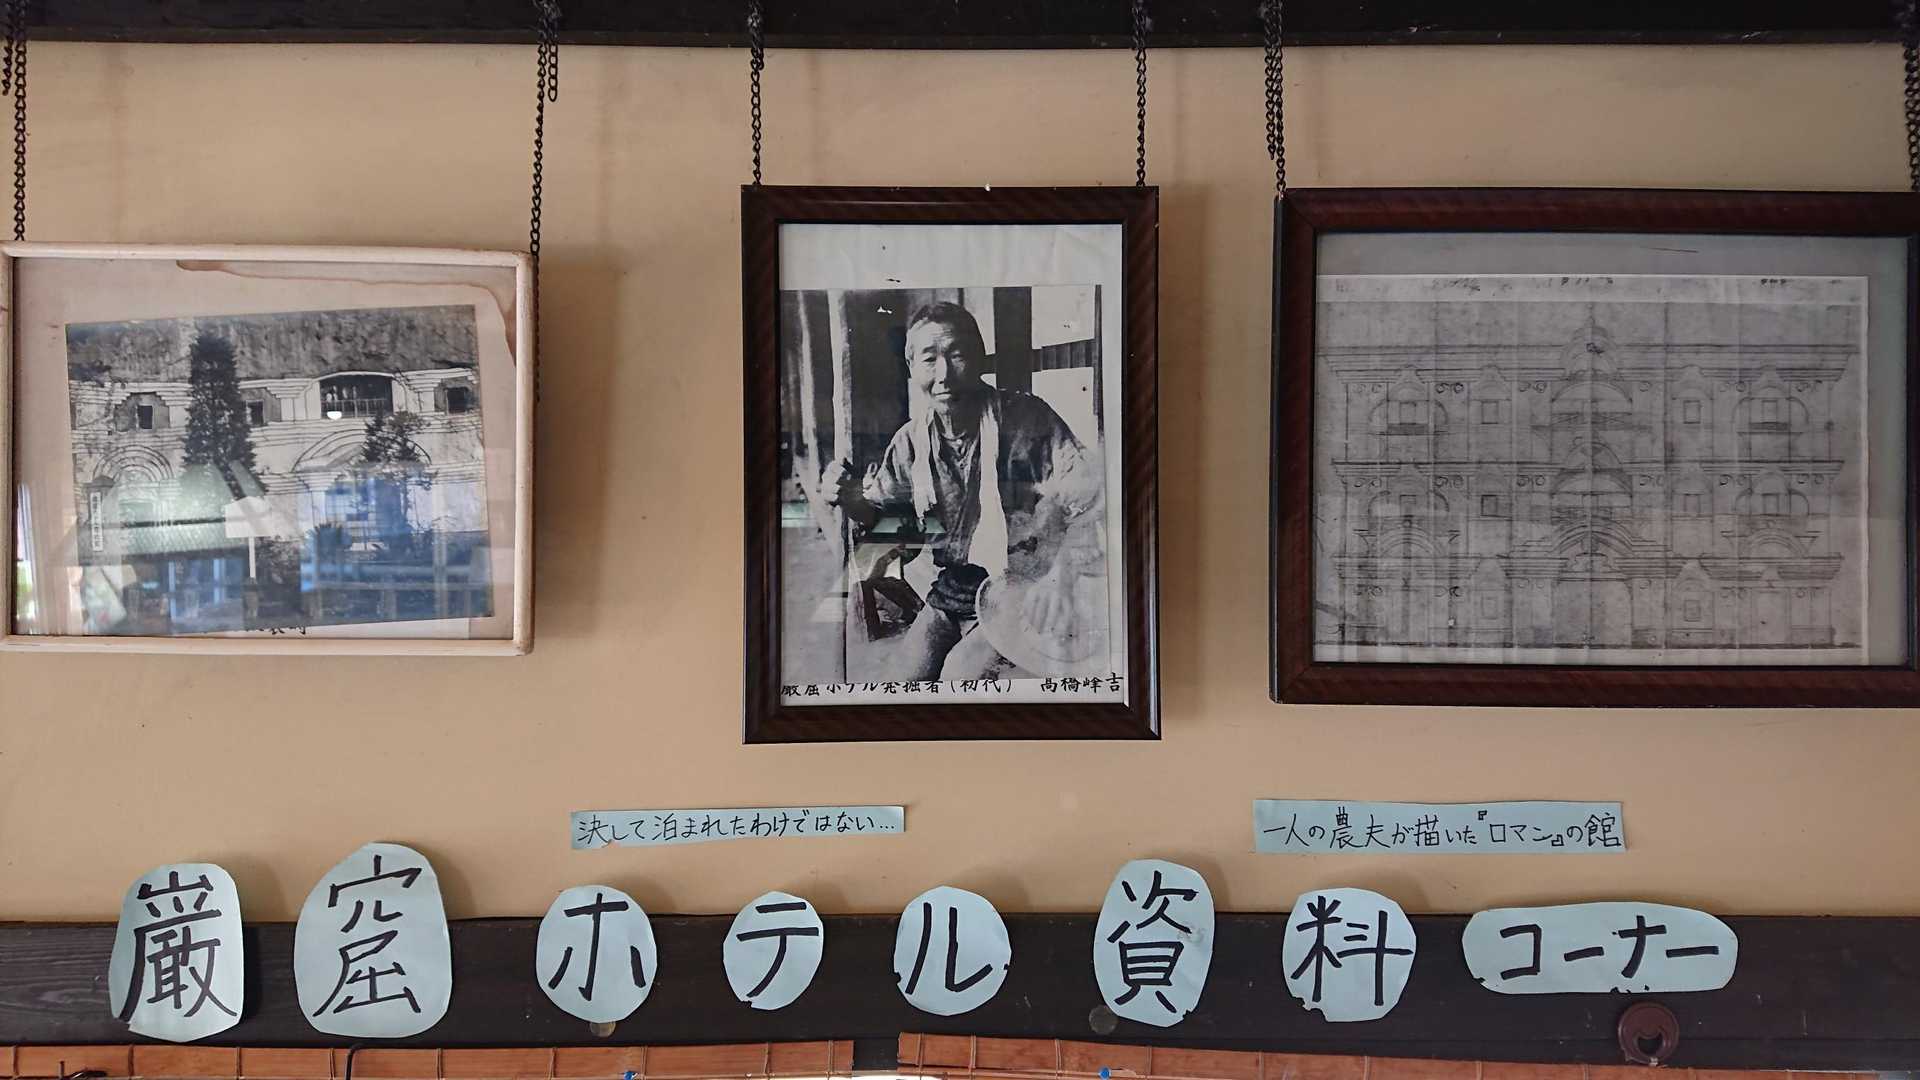 巌窟ホテル発掘者（初代） 高橋峰吉
決して泊まれたわけではない…
一人の農夫が描いた『ロマン』の館
巌窟ホテル資料コーナー